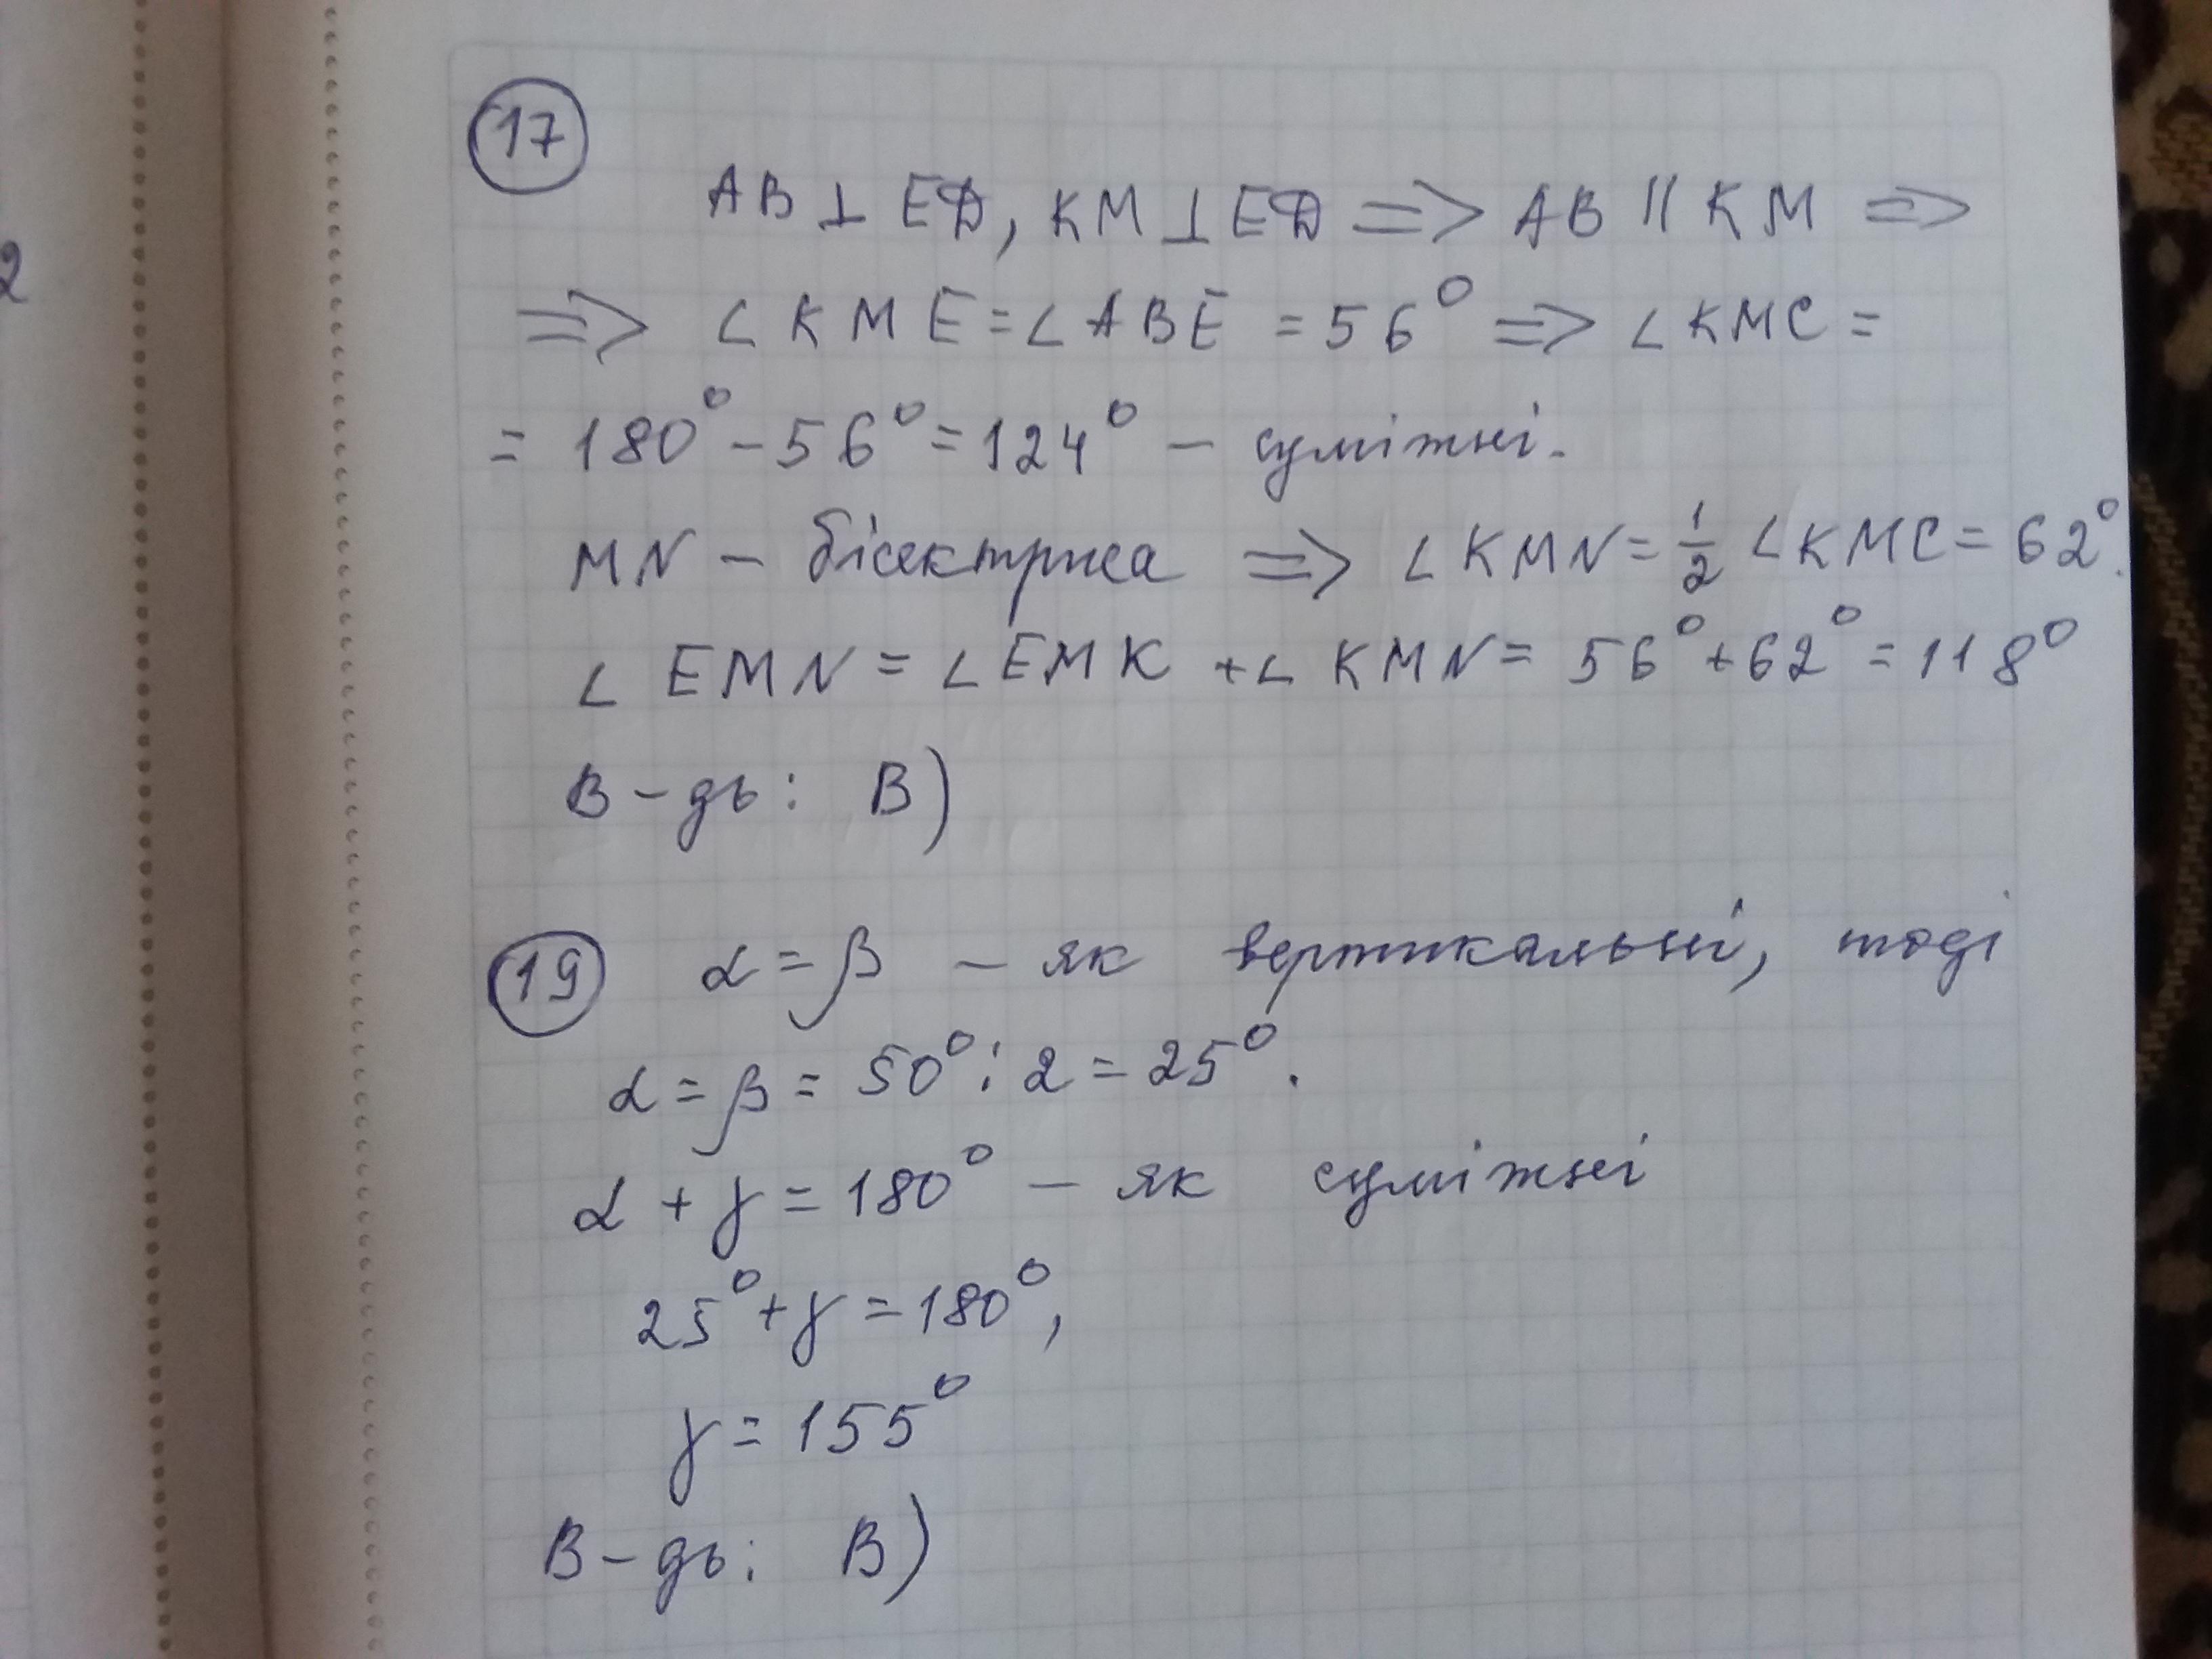 2
17
AB ⊥ ED, KM ⊥ ED => AB || KM =>
=> ∠KME = ∠ABE = 56° => ∠KMC =
= 180° - 56° = 124° - суміжні.
MN - бісектриса => ∠KMN = 1/2 ∠KMC = 62°.
∠EMN = ∠EMK + ∠KMN = 56° + 62° = 118°
В-дь: В)
19 α = β - як вертикальні, тоді
α = β = 50° : 2 = 25°.
α + γ = 180° - як суміжні
25° + γ = 180°,
γ = 155°
В-дь: В)